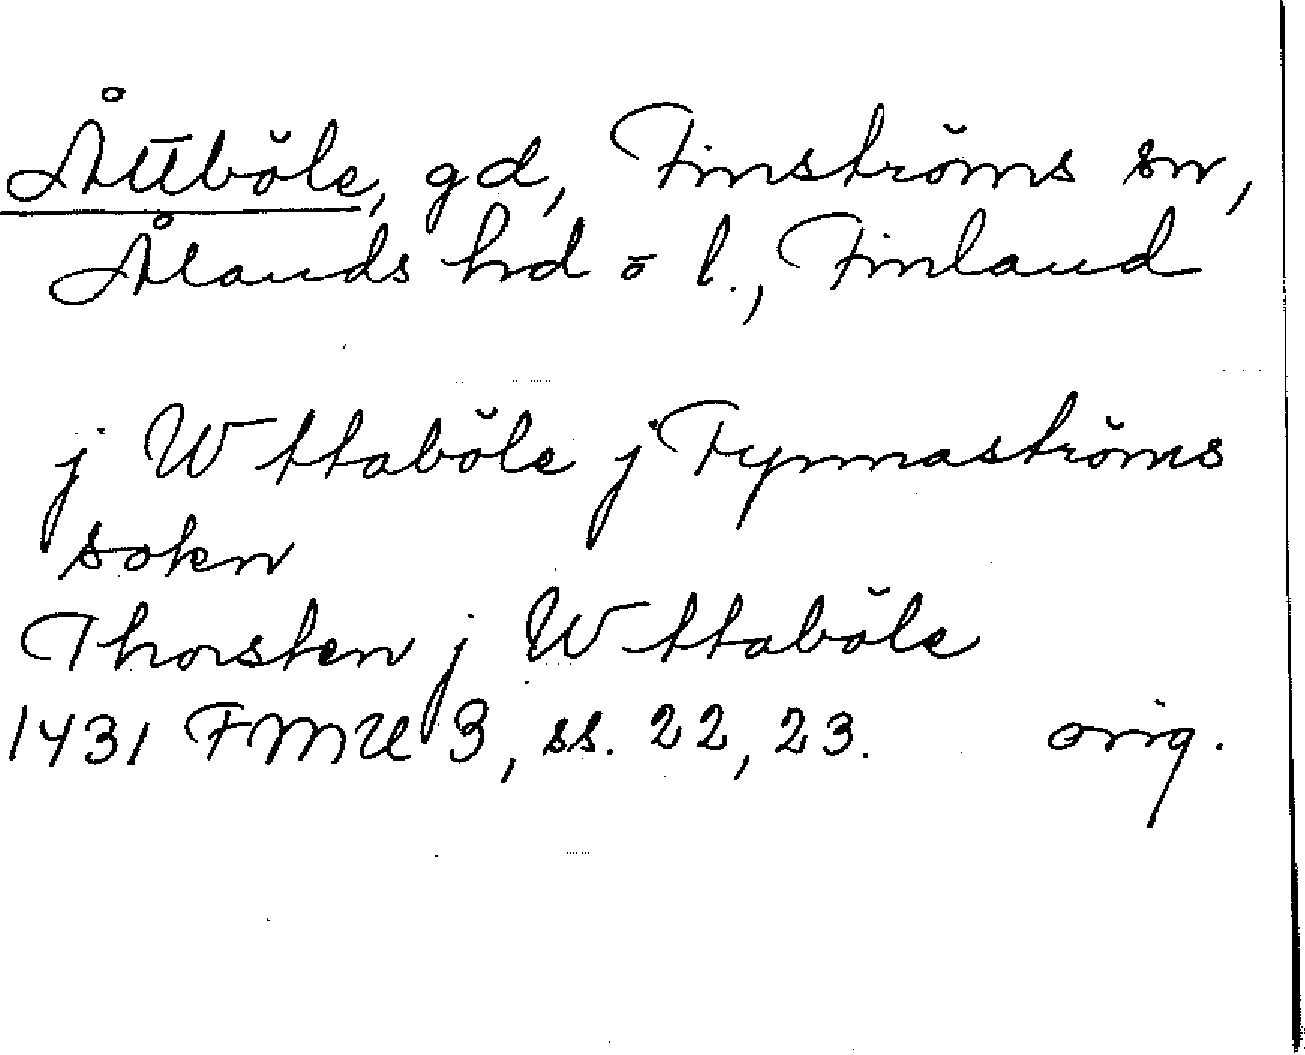 Åttböle, gd, Finströms sn,
Ålands hd o l., Finland
j Wttaböle j Fynnaströms
sokn
Thorsten j Wttaböle
1431 FMU 3, ss. 22, 23. orig.